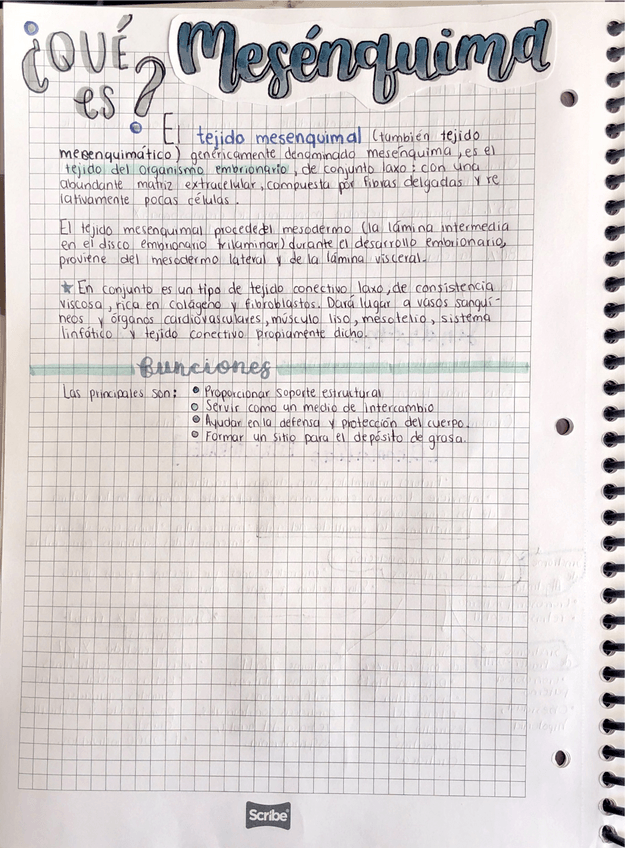 ¿QUÉ es? Mesénquima
El tejido mesenquimal (también tejido
mesenquimático) genéricamente denominado mesénquima, es el
tejido del organismo embrionario, de conjunto laxo: con una
abundante matriz extracelular, compuesta por fibras delgadas y re
lativamente pocas células.
El tejido mesenquimal procede del mesodermo (la lámina intermedia
en el disco embrionario trilaminar) durante el desarrollo embrionario,
proviene del mesodermo lateral y de la lámina visceral.
★ En conjunto es un tipo de tejido conectivo laxo, de consistencia
viscosa, rica en colágeno y fibroblastos. Dará lugar a vasos sanguí-
neos y órganos cardiovasculares, músculo liso, mesotelio, sistema
linfático y tejido conectivo propiamente dicho.
funciones
Las principales son: • Proporcionar soporte estructural
• Servir como un medio de intercambio
• Ayudar en la defensa y protección del cuerpo.
• Formar un sitio para el depósito de grasa.
Scribe